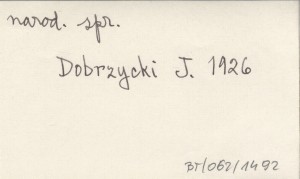 narod. spr.
Dobrzycki J. 1926
BT/062/1492